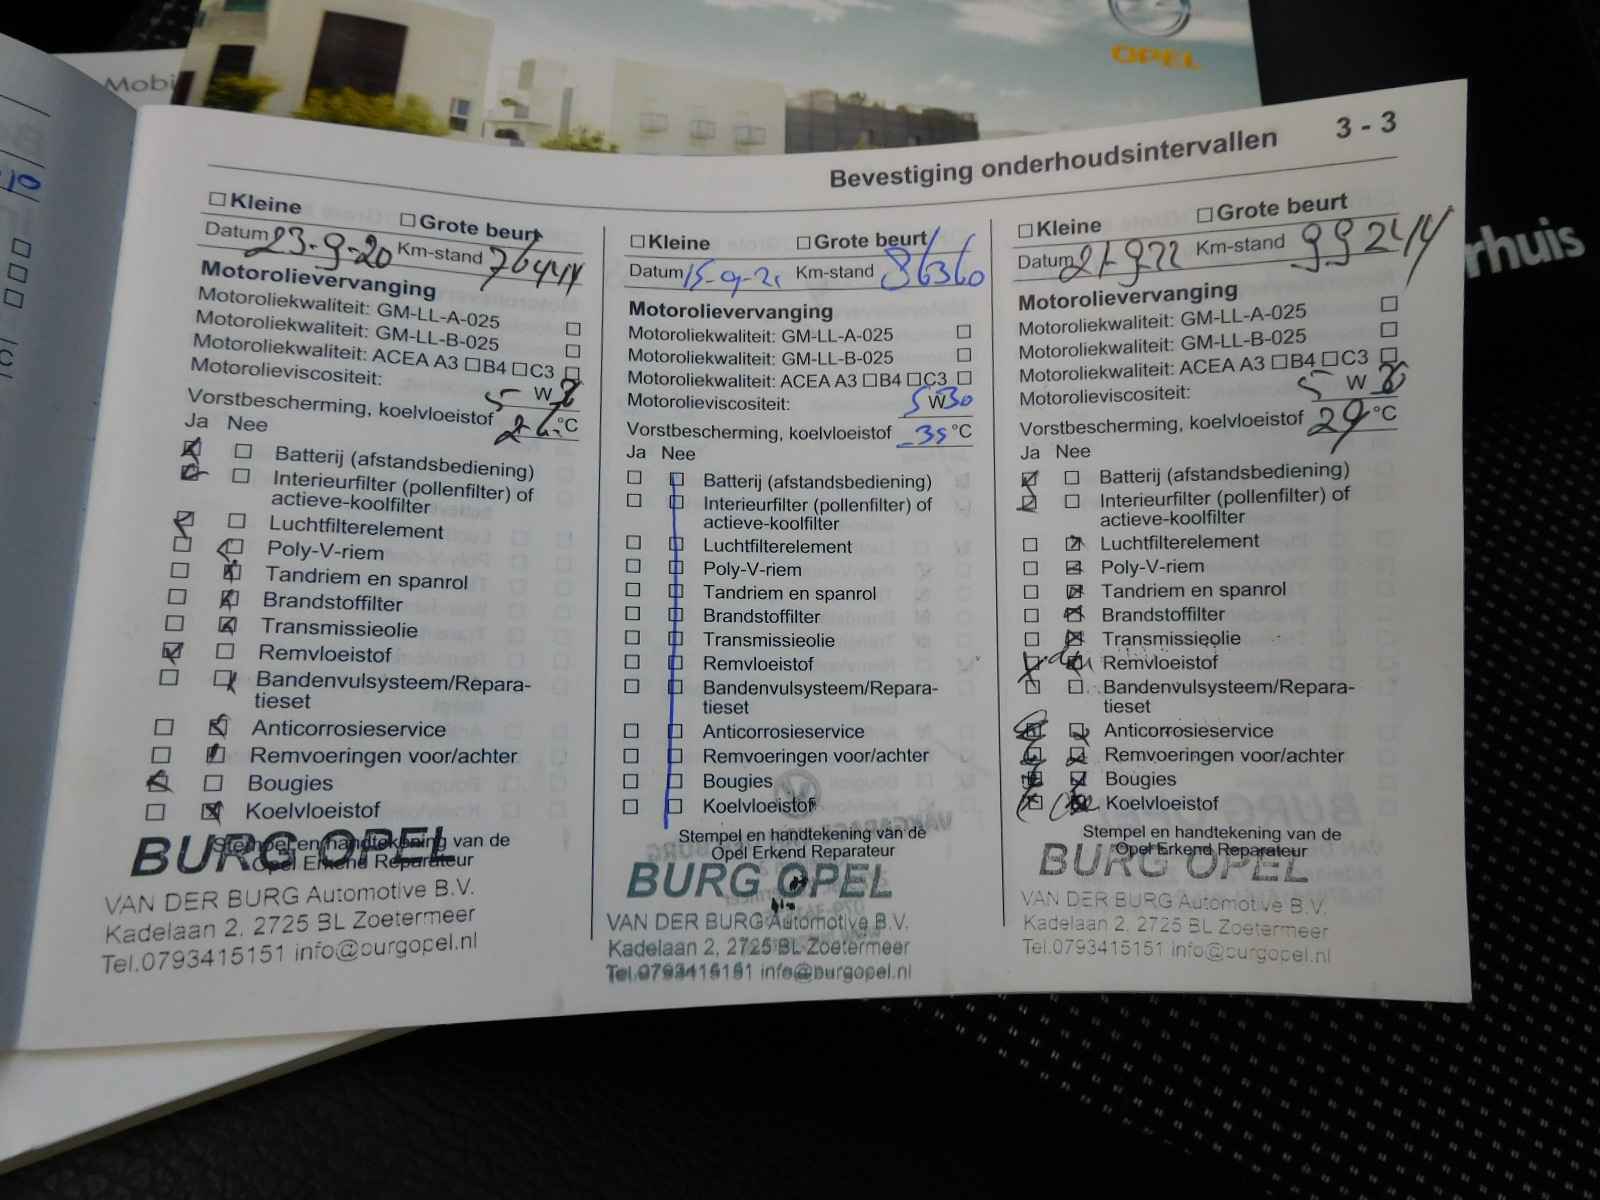 Mobi
OPEL
rhuis
Bevestiging onderhoudsintervallen 3 - 3
Kleine Grote beurt
Datum 23-9-20 Km-stand 76444
Motorolievervanging
Motoroliekwaliteit: GM-LL-A-025
Motoroliekwaliteit: GM-LL-B-025
Motoroliekwaliteit: ACEA A3 B4 C3
Motorolieviscositeit: 5 W
Vorstbescherming, koelvloeistof °C
Ja Nee
Batterij (afstandsbediening)
Interieurfilter (pollenfilter) of
actieve-koolfilter
Luchtfilterelement
Poly-V-riem
Tandriem en spanrol
Brandstoffilter
Transmissieolie
Remvloeistof
Bandenvulsysteem/Repara-
tieset
Anticorrosieservice
Remvoeringen voor/achter
Bougies
Koelvloeistof
Stempel en handtekening van de
Opel Erkend Reparateur
BURG OPEL
VAN DER BURG Automotive B.V.
Kadelaan 2, 2725 BL Zoetermeer
Tel.0793415151 info@burgopel.nl
Kleine Grote beurt
Datum 15-9-21 Km-stand 86360
Motorolievervanging
Motoroliekwaliteit: GM-LL-A-025
Motoroliekwaliteit: GM-LL-B-025
Motoroliekwaliteit: ACEA A3 B4 C3
Motorolieviscositeit: 5 W 30
Vorstbescherming, koelvloeistof -35 °C
Ja Nee
Batterij (afstandsbediening)
Interieurfilter (pollenfilter) of
actieve-koolfilter
Luchtfilterelement
Poly-V-riem
Tandriem en spanrol
Brandstoffilter
Transmissieolie
Remvloeistof
Bandenvulsysteem/Repara-
tieset
Anticorrosieservice
Remvoeringen voor/achter
Bougies
Koelvloeistof
Stempel en handtekening van de
Opel Erkend Reparateur
BURG OPEL
VAN DER BURG Automotive B.V.
Kadelaan 2, 2725 BL Zoetermeer
Tel.0793415151 info@burgopel.nl
Kleine Grote beurt
Datum 21-9-22 Km-stand 99244
Motorolievervanging
Motoroliekwaliteit: GM-LL-A-025
Motoroliekwaliteit: GM-LL-B-025
Motoroliekwaliteit: ACEA A3 B4 C3
Motorolieviscositeit: 5 W
Vorstbescherming, koelvloeistof 29 °C
Ja Nee
Batterij (afstandsbediening)
Interieurfilter (pollenfilter) of
actieve-koolfilter
Luchtfilterelement
Poly-V-riem
Tandriem en spanrol
Brandstoffilter
Transmissieolie
Remvloeistof
Bandenvulsysteem/Repara-
tieset
Anticorrosieservice
Remvoeringen voor/achter
Bougies
Koelvloeistof
Stempel en handtekening van de
Opel Erkend Reparateur
BURG OPEL
VAN DER BURG Automotive B.V.
Kadelaan 2, 2725 BL Zoetermeer
Tel.0793415151 info@burgopel.nl